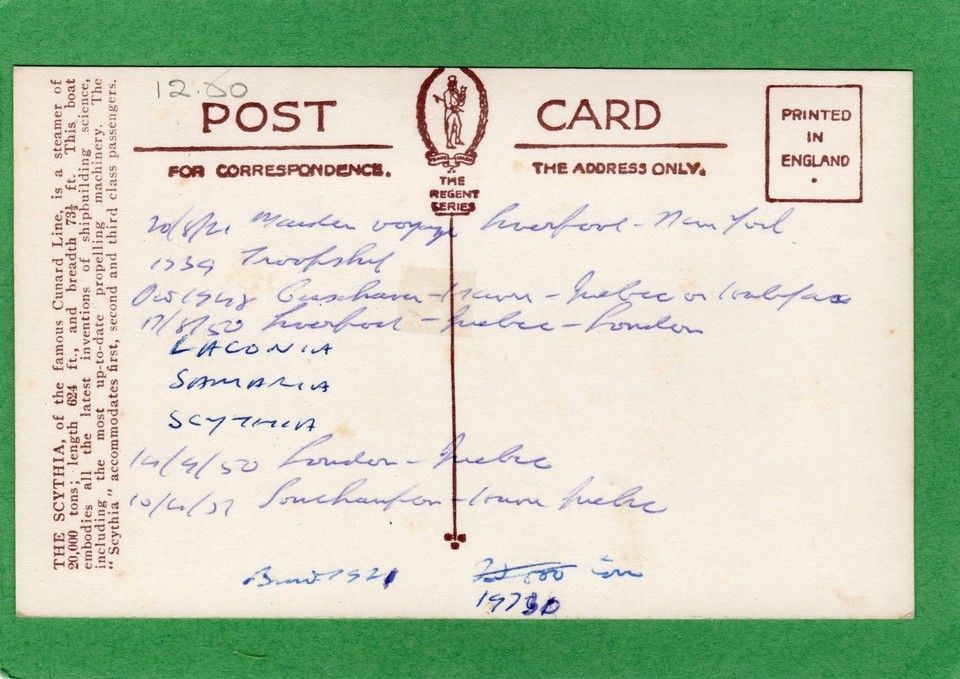 12.60
POST CARD
FOR CORRESPONDENCE.
THE ADDRESS ONLY.
THE
REGENT
SERIES
PRINTED
IN
ENGLAND
THE SCYTHIA, of the famous Cunard Line, is a steamer of
20,000 tons; length 624 ft., and breadth 73½ ft. This boat
embodies all the latest inventions of shipbuilding science,
including the most up-to-date propelling machinery. The
"Scythia" accommodates first, second and third class passengers.
20/8/21 Maiden voyage Liverpool - New York
1939 Troopship
1948 Cuxhaven - Havre - Quebec or Halifax
17/8/50 Liverpool - Quebec - London
LACONIA
SAMARIA
SCYTHIA
14/9/50 London - Quebec
Southampton - Havre Quebec
1921